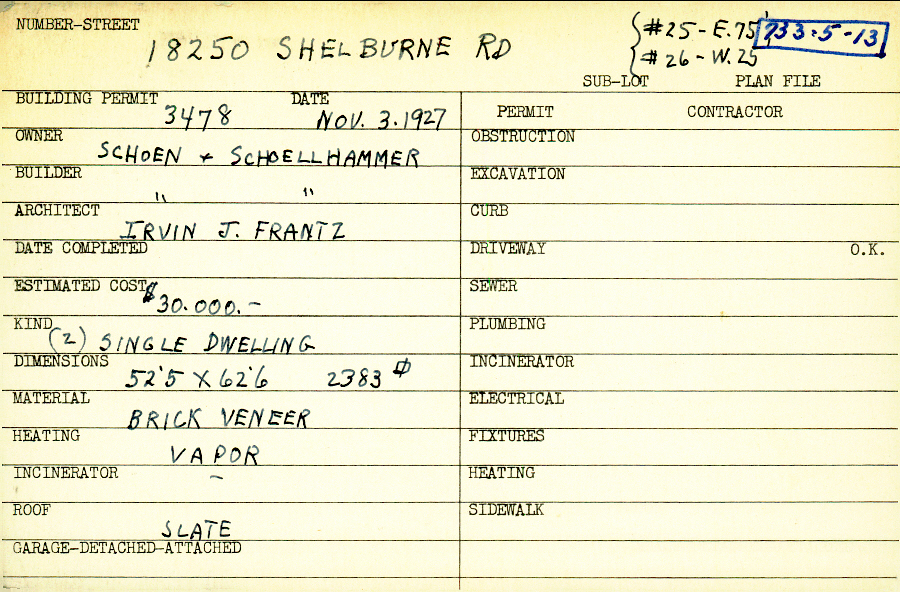 NUMBER-STREET
18250 SHELBURNE RD
{#25 - E.75'
{#26 - W.25
733-5-13
SUB-LOT PLAN FILE
BUILDING PERMIT DATE
3478 NOV. 3.1927
OWNER
SCHOEN + SCHOELLHAMMER
BUILDER
" "
ARCHITECT
IRVIN J. FRANTZ
DATE COMPLETED
ESTIMATED COST
$30.000.-
KIND
(2) SINGLE DWELLING
DIMENSIONS
52'5 X 62'6 2383
MATERIAL
BRICK VENEER
HEATING
VAPOR
INCINERATOR
-
ROOF
SLATE
GARAGE-DETACHED-ATTACHED
PERMIT CONTRACTOR
OBSTRUCTION
EXCAVATION
CURB
DRIVEWAY O.K.
SEWER
PLUMBING
INCINERATOR
ELECTRICAL
FIXTURES
HEATING
SIDEWALK